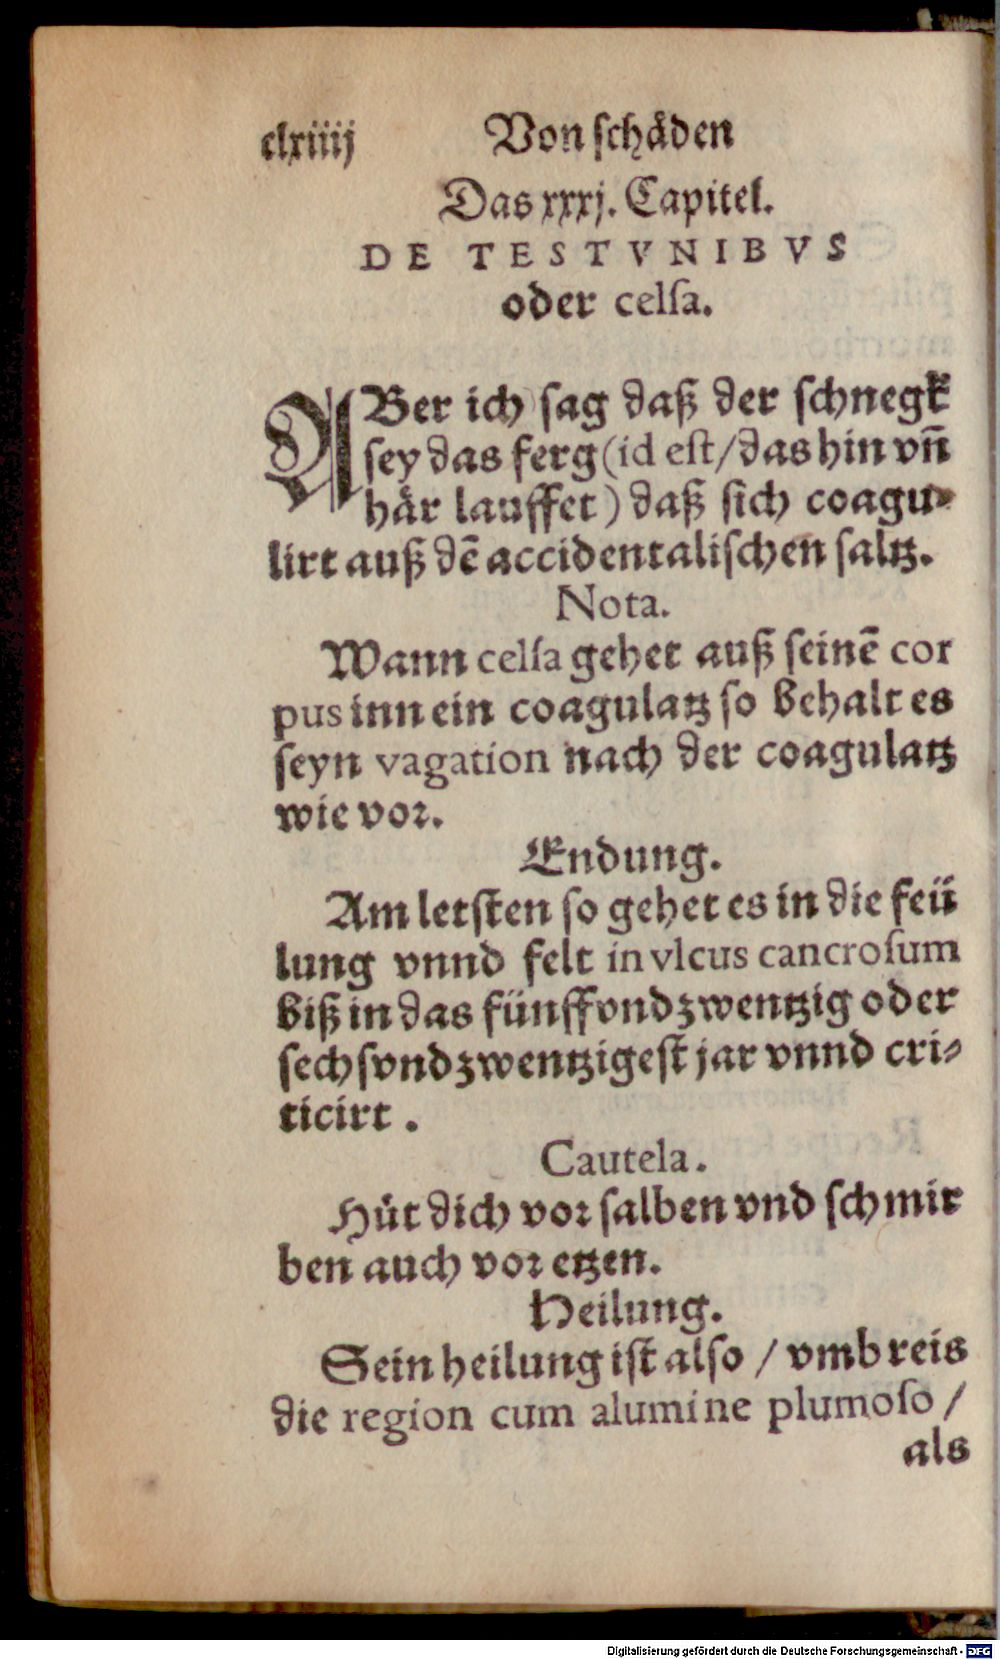 clxiiij Von schäden
Das xxxj. Capitel.
DE TESTVNIBVS
oder celsa.
ABer ich sag daß der schnegk
sey das ferg (id est/das hin vñ
här lauffet) daß sich coagu-
lirt auß dē accidentalischen saltz.
Nota.
Wann celsa gehet auß seinē cor
pus inn ein coagulatz so behalt es
seyn vagation nach der coagulatz
wie vor.
Endung.
Am letsten so gehet es in die feü
lung vnnd felt in vlcus cancrosum
biß in das fünffvndzwentzig oder
sechsvndzwentzigest jar vnnd cri-
ticirt.
Cautela.
Hüt dich vor salben vnd schmir
ben auch vor etzen.
Heilung.
Sein heilung ist also / vmbreis
die region cum alumine plumoso /
als
Digitalisierung gefördert durch die Deutsche Forschungsgemeinschaft - DFG